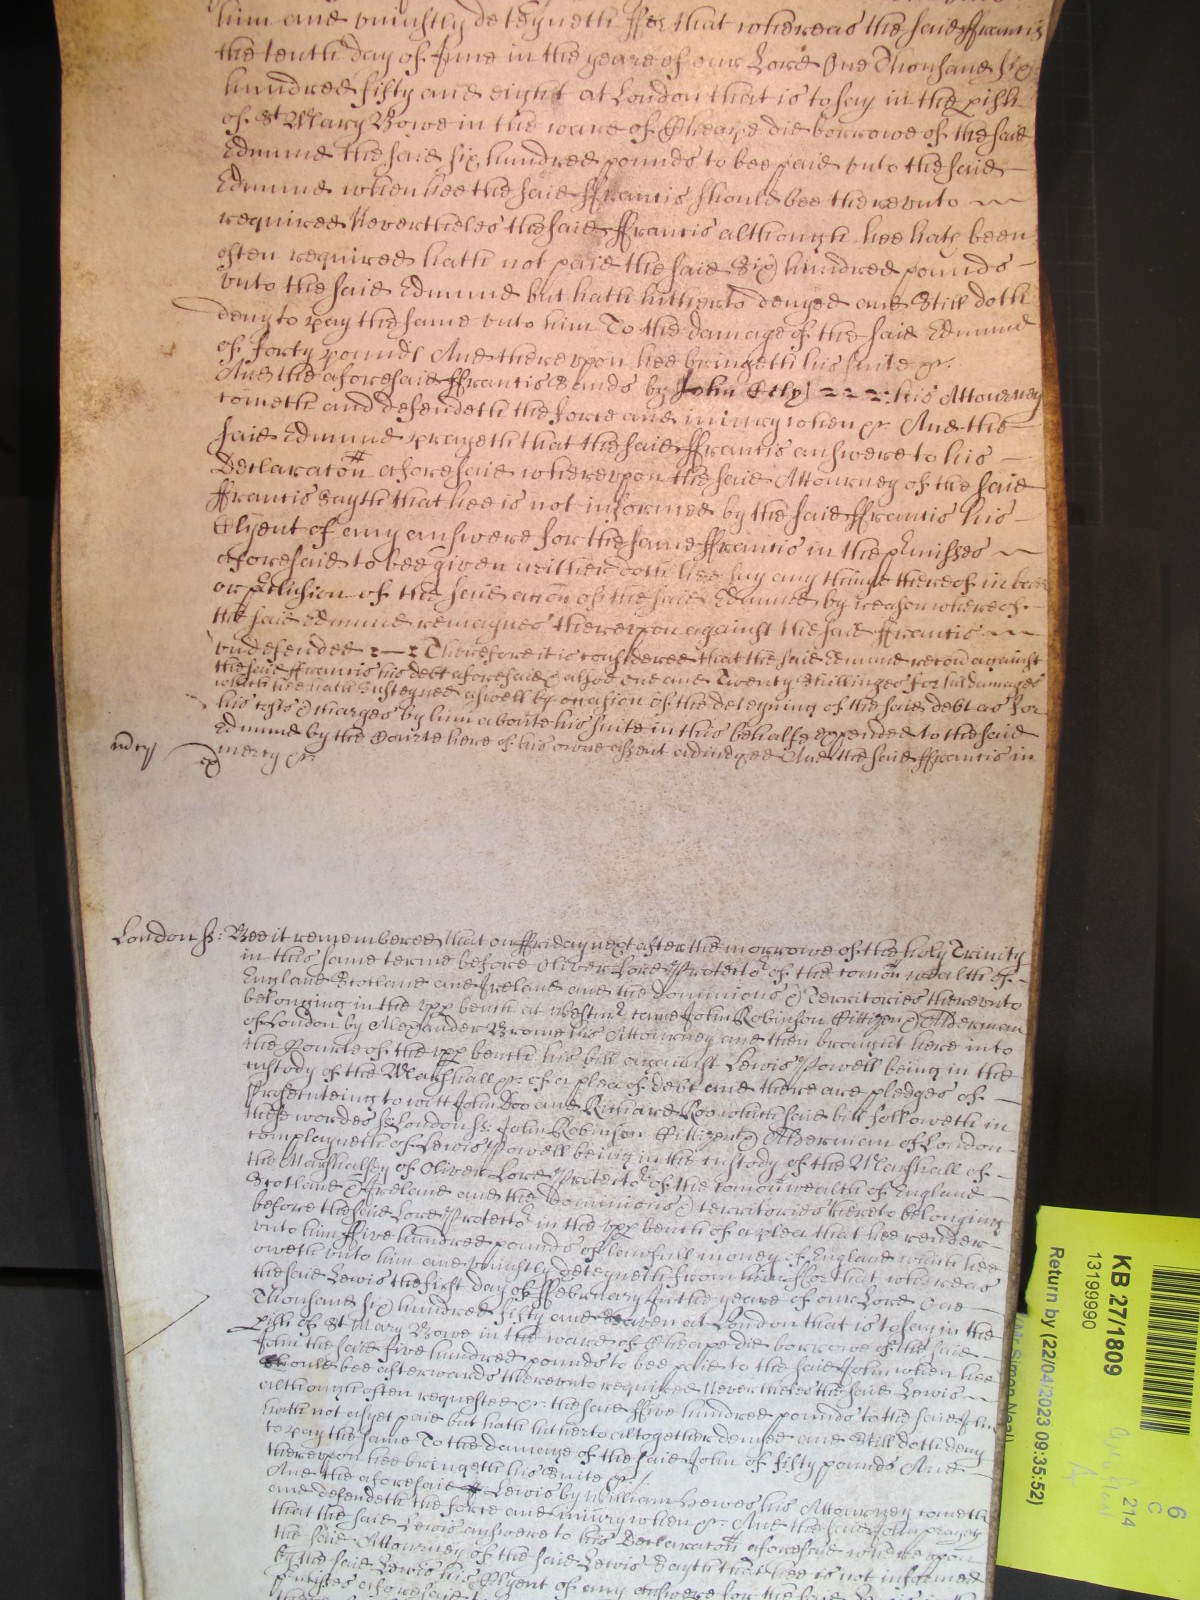 him and uniustly deteyneth ffor that whereas the said ffrancis
the tenth day of June in the yeare of our Lord One Thousand six
hundred fifty and eight at London that is to say in the pish
of St Mary Bowe in the ward of Cheape did borrowe of the said
Edmund the said six hundred pounds to bee paid unto the said
Edmund when hee the said ffrancis should bee thereunto
required Nevertheles the said ffrancis although hee hath been
often required hath not paid the said Six hundred pounds
unto the said Edmund but hath hitherto denyed and Still doth
deny to pay the same unto him To the damage of the said Edmund
of forty pounds And thereupon hee bringeth his suite &c.
And the aforesaid ffrancis Sands by John Eely his Attourney
cometh and defendeth the force and iniury when &c. And the
said Edmund prayeth that the said ffrancis answere to his
Declaracon aforesaid whereupon the said Attourney of the said
ffrancis Sayth that hee is not informed by the said ffrancis his
Clyent of any answere for the same ffrancis in the pmisses
aforesaid to bee given neither doth hee say any thinge thereof in barr
or pclusion of the said accon of the said Edmund by reason whereof
the said Edmund remaynes thereupon against the said ffrancis
undefended Therefore it is considered that the said Edmund recou against
the said ffrancis his debt aforesaid & alsoe one and Twenty Shillinges for his damages
which hee hath Susteyned aswell by occasion of the deteyning of the said debt as for
his costs & charges by him aboute his suite in this behalfe expended to the said
Edmund by the Courte here of his owne assent adiudged And the said ffrancis in
mercy &c.
mcy
London ss: Bee it remembered that on ffriday next after the morrowe of the holy Trinity
in this same terme before Oliver Lord Protector of the comon wealth of
England Scotland and Ireland and the Dominions & Territories thereunto
belonging in the upp bench at Westmr came John Robinson Cittizen & Alderman
of London by Alexander Brome his Attourney and then brought here into
the Courte of the upp bench his bill against Lewis Powell being in the
custody of the Marshall &c. of a plea of debt and there are pledges of
Prosecuteing to witt John Doo and Richard Roo which said bill followeth in
these wordes ss: London ss: John Robinson Cittizen & Alderman of London
complayneth of Lewis Powell being in the custody of the Marshall of
the Marshalsey of Oliver Lord Protector of the comon wealth of England
Scotland & Ireland and the Dominions & territories thereto belonging
before the said Lord Protector in the upp bench of a plea that hee render
unto him ffive hundred pounds of lawfull money of England which hee
oweth unto him and uniustly deteyneth from him ffor that whereas
the said Lewis the first day of ffebruary In the yeare of our Lord One
Thousand six hundred fifty and seaven at London that is to say in the
pish of St Mary Bowe in the ward of Cheape did borrowe of the said
John the said five hundred pounds to bee paid to the said John when hee
should bee afterwards thereunto required Nevertheles the said Lewis
although often requested &c. the said ffive hundred pounds to the said John
hath not as yet paid but hath hitherto altogether denyed and Still doth deny
to pay the same To the damage of the said John of fifty pounds And
thereupon hee bringeth his Suite &c.
And the aforesaid Lewis by William Hewes his Attourney cometh
and defendeth the force and iniury when &c. And the said John prayes
that the said Lewis answere to his Declaracon aforesaid whereupon
the said Attourney of the said Lewis Sayth that hee is not informed
by the said Lewis his Clyent of any answere for the said Lewis in the
pmisses aforesaid
KB 27/1809
13199990
Return by (22/04/2023 09:35:52)
Mr Simon Neal
6
C
214